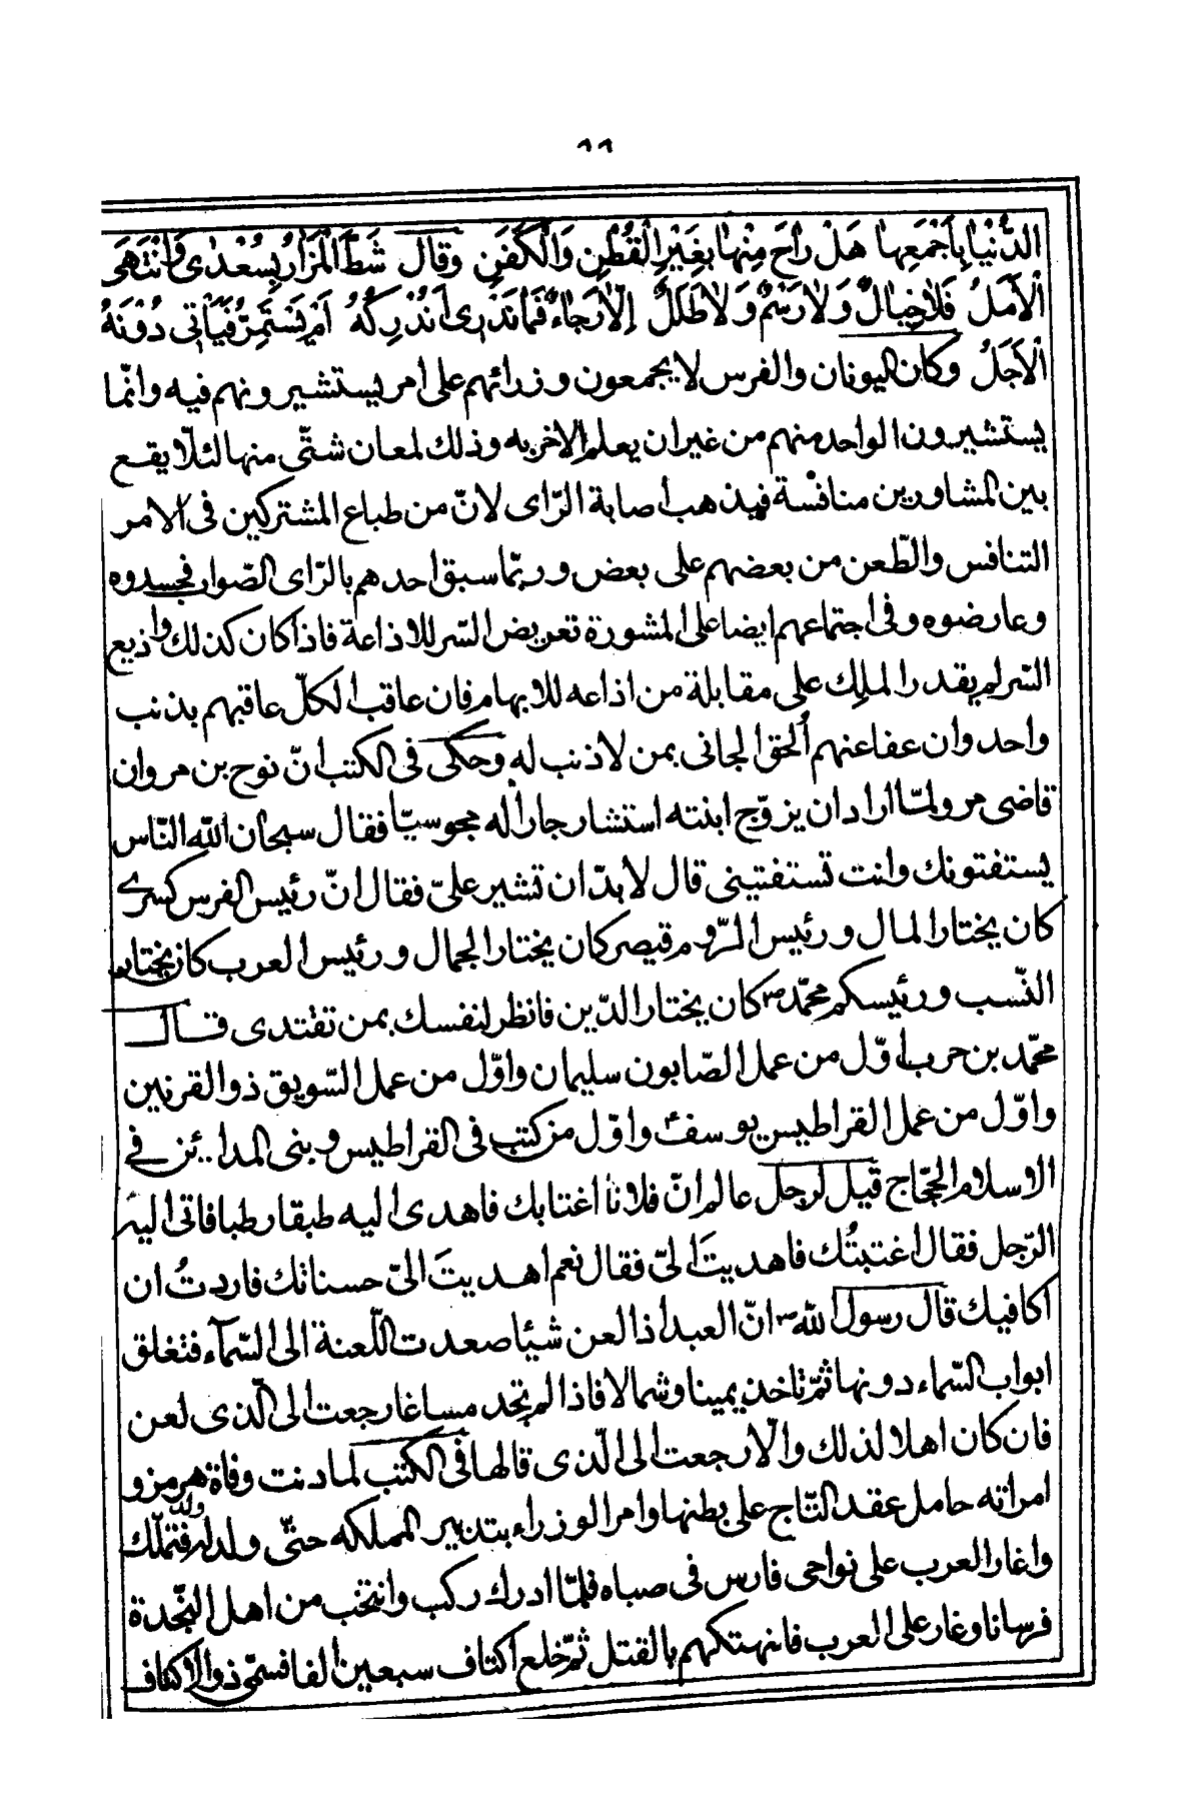 ٨٨
الدُّنْيٰا بِأَجْمَعِهٰا هَلْ رٰاحَ مِنْهٰا بِغَيْرِ الْقُطْنِ وَالْكَفَنِ وقال شَطَّ الْمَزٰارُ بِسُعْدٰى وَانْتَهَى
الْأَمَلُ فَلاٰ خَيٰالٌ وَلاٰ رَسْمٌ وَلاٰ طَلَلٌ اِلّاٰ رَجٰاءٌ فَمٰا نَدْرى أَنُدْرِكُهُ اَمْ يَسْتَمِرُّ فَيَأْتى دُونَهُ
الْأَجَلُ وكان اليونان والفرس لا يجمعون وزرائهم على امر يستشيرونهم فيه وانّما
يستشيرون الواحد منهم من غير ان يعلم الاخر به وذلك لمعان شتّى منها لئلّا يقع
بين المشاورين منافسة فيذهب اصابة الرّاى لانّ من طباع المشتركين فى الامر
التنافس والطّعن من بعضهم على بعض وربّما سبق احدهم بالرّاى الصّواب فحسدوه
وعارضوه وفى اجتماعهم ايضا على المشورة تعريض السّر للاذاعة فاذا كان كذلك واذيع
السّر لم يقدر الملك على مقابلة من اذاعه للابهام فان عاقب الكلّ عاقبهم بذنب
واحد وان عفا عنهم ألحق الجانى بمن لا ذنب له وحكى فى الكتب انّ نوح بن مروان
قاضى مرو لمّا اراد ان يزوّج ابنته استشار جاراً له مجوسيّا فقال سبحان اللّه النّاس
يستفتونك وانت تستفتينى قال لا بدّ ان تشير علىّ فقال انّ رئيس الفرس كسرى
كان يختار المال ورئيس الرّوم قيصر كان يختار الجمال ورئيس العرب كان يختار
النّسب ورئيسكم محمّد ص كان يختار الدّين فانظر لنفسك بمن تقتدى قال
محمّد بن حرب اوّل من عمل الصّابون سليمان واوّل من عمل السّويق ذو القرنين
واوّل من عمل القراطيس يوسف ع واوّل من كتب فى القراطيس وبنى المدائن فى
الاسلام الحجّاج قيل لرجل عالم انّ فلانا اغتابك فاهدى اليه طبقا رطبا فاتى اليه
الرّجل فقال اغتبتُك فاهديتَ الىّ فقال نعم اهديتَ الىّ حسناتك فاردتُ ان
اكافيك قال رسول اللّه ص انّ العبد اذا لعن شيئا صعدت اللّعنة الى السّمآء فتغلق
ابواب السّماء دونها ثمّ تاخذ يمينا وشمالا فاذا لم تجد مساغا رجعت الى الّذى لعن
فان كان اهلا لذلك والّا رجعت الى الّذى قالها فى الكتب لما دنت وفاة هرمز و
امراته حامل عقد التّاج على بطنها وامر الوزراء بتدبير المملكه حتّى ولد له ولد فتملّك
واغار العرب على نواحى فارس فى صباه فلمّا ادرك ركب وانتخب من اهل النّجدة
فرسانا وغار على العرب فانهتكهم بالقتل ثمّ خلع اكتاف سبعين الفا فسمّى ذو الاكتاف